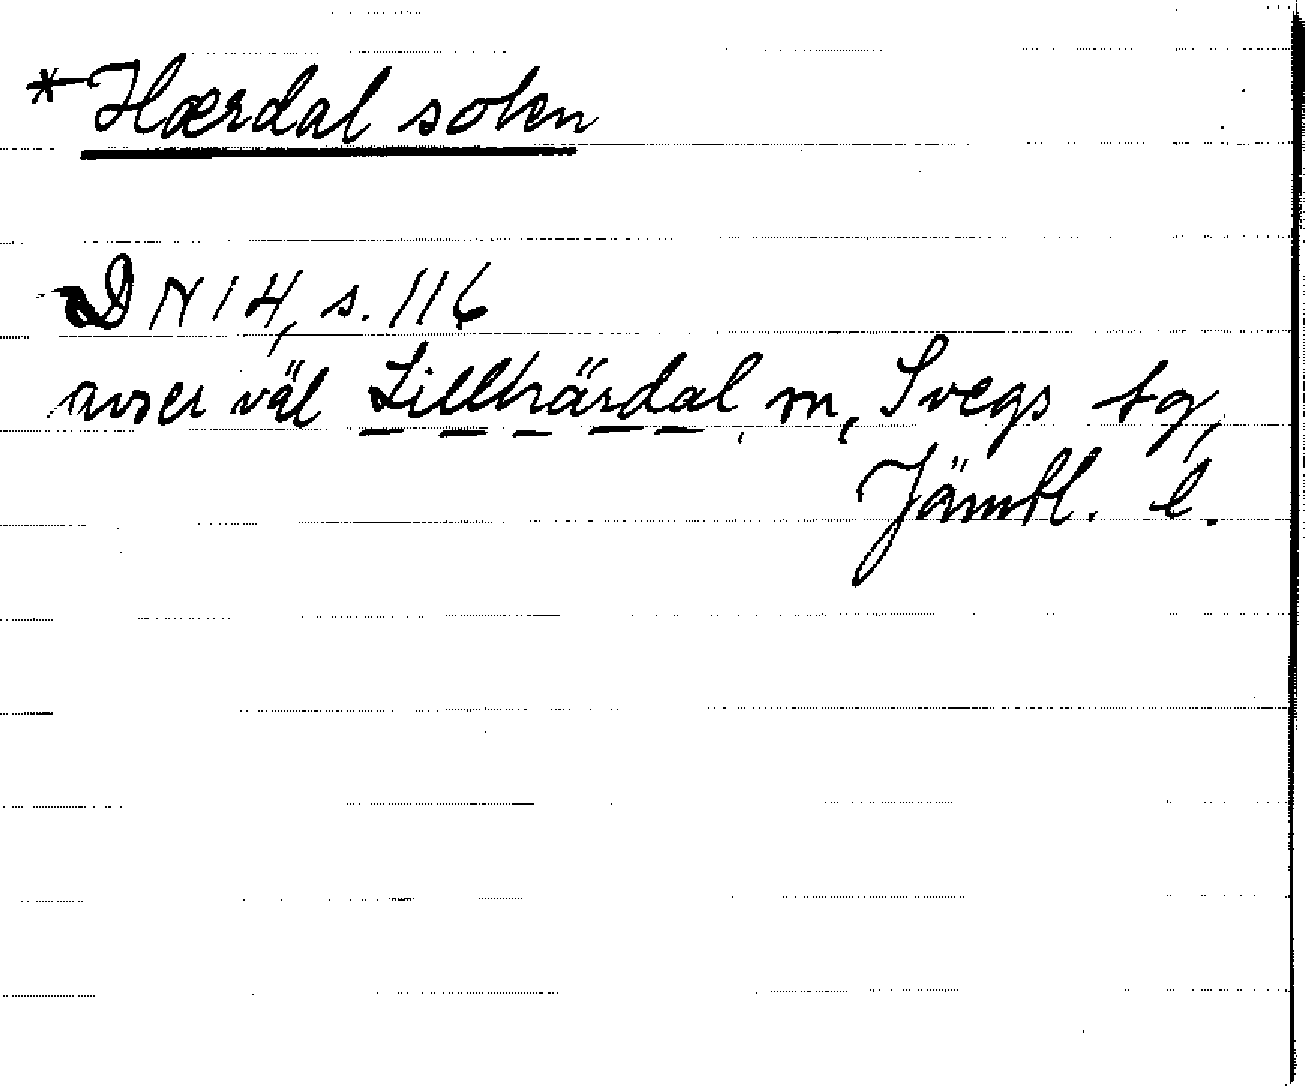 * Hærdal sokn
DN 14, s. 116
avser väl Lillhärdal, m, Svegs tg,
Jämtl. l.